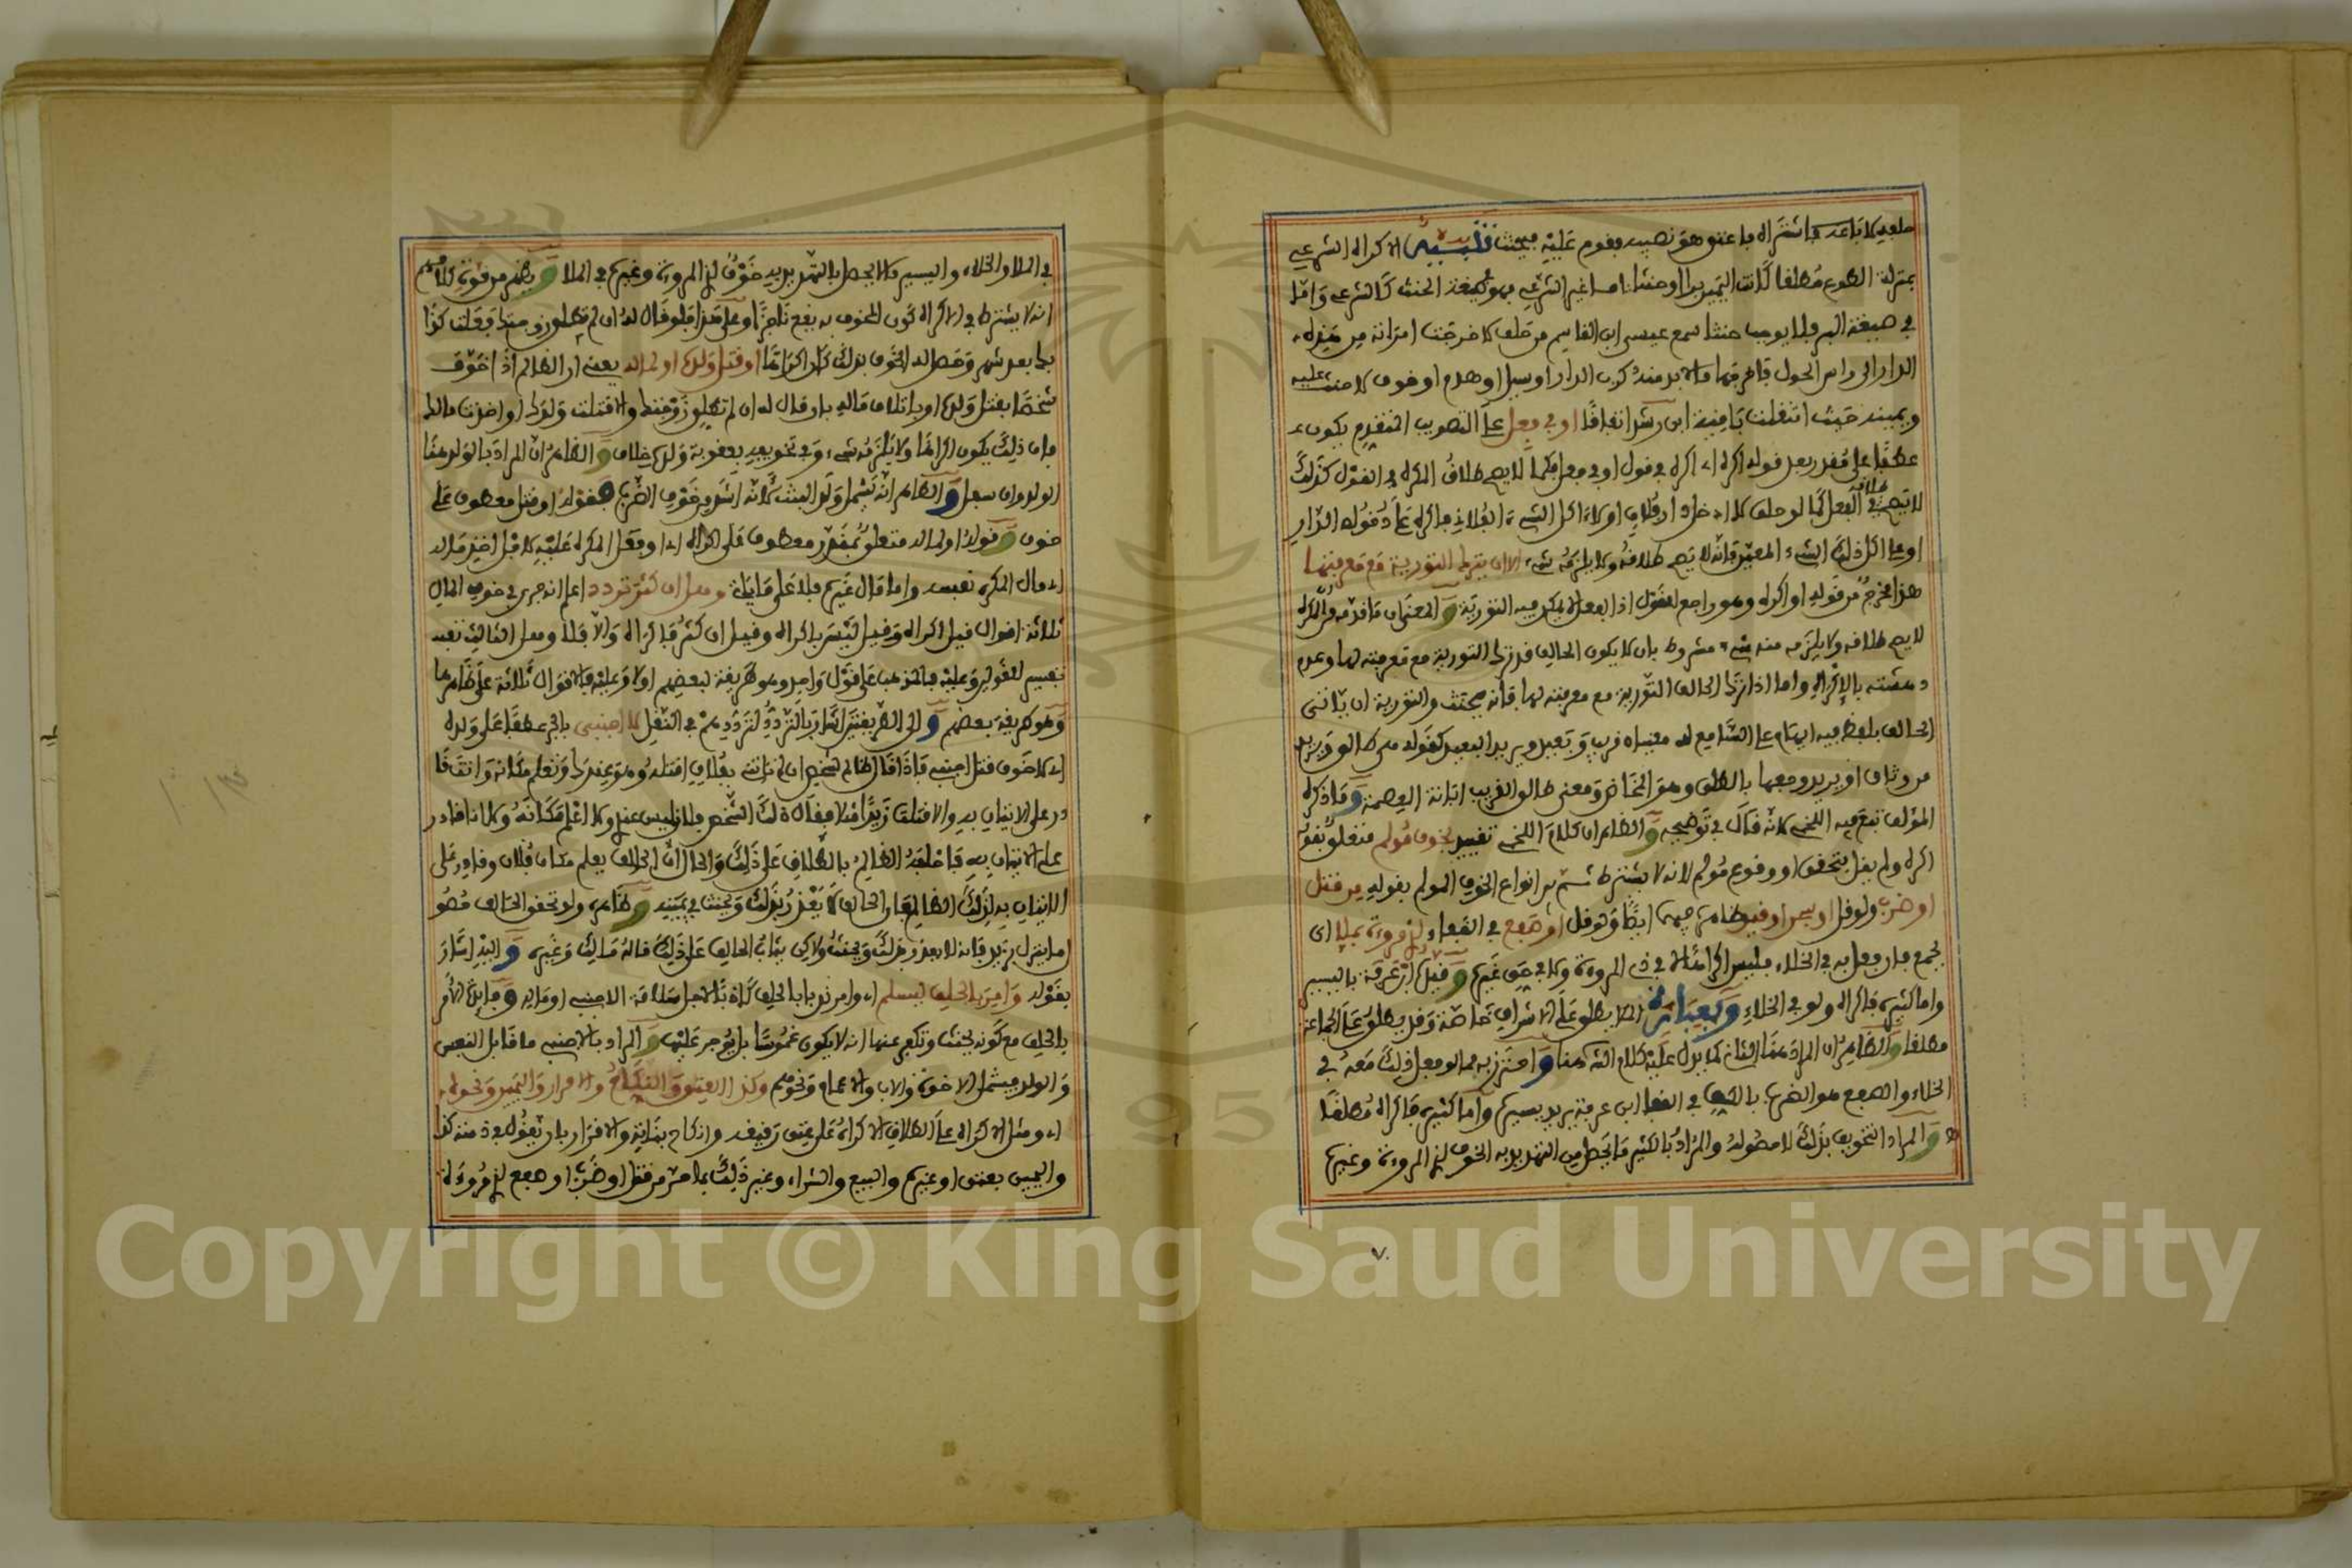 حلفه لا باعه فاشتراه فاعتق هو نصيب فقوم عليه فيحنث تنبيه الاكراه الشرعي
بمنزلة الطوع مطلقا كانت اليمين برا او حنثا واما غير الشرعي فهو في صيغة الحنث كالشرعي واما
في صيغة البر فلا يوجب حنثا سمع عيسى ابن القاسم من حلف لا خرجت امراته من هذه
الدار الى راس الحول فاخرجها ما لا بد منه كرب الدار او سيل او هدم او خوف لا حنث عليه
ويمينه حيث انتقلت باقية ابن رشد اتفاقا او في فعل على التصويب المتقدم يكون
عطفا على مقدر بعد قوله اكره اي اكره في قول او في فعل فكما لا يصح طلاق المكره في القول كذلك
لا يصح طلاقه في الفعل كما لو حلف لا ادخل دار فلان او لا اكل الشيء الفلاني فاكره على دخوله الدار
او على اكل ذلك الشيء المعين فانه لا يصح طلاقه ولا يلزمه شيء الا ان يترك التورية مع معرفتها
هذا مخرج من قوله او اكره وهو راجع للقول اذ الفعل لا يمكن فيه التورية والمعنى ان ما قدمه من المكره
لا يصح طلاقه ولا يلزمه منه شيء مشروط بان لا يكون الحالف قد ترك التورية مع معرفته لها وعدم
دهشته بالاكراه واما اذا ترك الحالف التورية مع معرفته لها فانه يحنث والتورية ان ياتي
الحالف بلفظ فيه ايهام على السامع له معنيان قريب وبعيد ويريد البعيد كقوله هي طالق ويريد
من وثاق او يريد وجعها بالطلق وهو المخاض ومعنى طالق القريب ابانة العصمة وما ذكره
المؤلف تبع فيه اللخمي لانه قال في توضيحه والظاهر ان كلام اللخمي تقييد بخوف مؤلم متعلق بقوله
اكره ولم يقل بتحقق او وقوع مؤلم لانه لا يشترط ثم بين انواع الخوف المؤلم بقوله من قتل
او ضرب ولو قل او سجن او قيد ظاهره فيهما ايضا ولو قل او صفع في القفا لذي مروءة بملا اي
بجمع فان فعل به في الخلاء فليس اكراها لا في ذي المروءة ولا في حق غيره وقيل ابن عرفة باليسير
واما كثيره فاكراه ولو في الخلاء وبعبارة الملا يطلق على الاشراف خاصة وقد يطلق على الجماعة
مطلقا والظاهر ان المراد هنا الثاني كما يدل عليه كلام الش هنا واحترز به مما لو فعل ذلك معه في
الخلاء والصفع هو الضرب بالكف في القفا ابن عرفة يريد يسيره واما كثيره فاكراه مطلقا
والمراد التخويف بذلك لا حصوله والمراد بالكثير ما يحصل من التهديد به الخوف لذي المروءة وغيره
٧٠
في الملا والخلاء واليسير ما لا يحصل بالتهديد به خوف لذي المروءة وغيره في الملا وظهر من قوة كلامهم
انه لا يشترط في الاكراه كون المخوف به يقع ناجزا وعلى هذا فلو قال له ان لم تطلق زوجتك فعلت كذا
بك بعد شهر وحصل له الخوف بذلك كان اكراها او قتل ولده او لماله يعني ان الظالم اذا خوف
شخصا بقتل ولده او باتلاف ماله بان قال له ان لم تطلق زوجتك والا قتلت ولدك او اخذت مالك
فان ذلك يكون اكراها ولا يلزمه شيء وفي تخويفه بعقوبة ولده خلاف والظاهر ان المراد بالولد هنا
الولد وان سفل والظاهر انه يشمل ولد البنت لانه اشد من خوف الضرب فقوله او قتل معطوف على
خوف وقوله او لماله متعلق بمقدر معطوف على اكراه اي او فعل المكره عليه لاجل اخذ ماله
اي مال المكره نفسه واما مال غيره فلا على ما ياتي وهل ان كثر تردد اعلم انه جرى في خوف المال
ثلاثة اقوال قيل اكراه وقيل ليس باكراه وقيل ان كثر فاكراه والا فلا وهل الثالث تقييد
تفسير للقولين وعليه فالمذهب على قول واحد وهو طريقة لبعضهم اولا وعليه فالاقوال ثلاثة على ظاهرها
وهو طريقة بعضهم والى الطريقتين اشار بالتردد لترددهم في النقل لا اجنبي بالجر عطفا على ولده
اي لا خوف قتل اجنبي فاذا قال ظالم لشخص ان لم تاتني بفلان اقتله وهو عندك وتعلم مكانه وانت قا
در على الاتيان به والا قتلت زيدا مثلا فقال ذلك الشخص فلان ليس عندي ولا اعلم مكانه ولا انا قادر
على الاتيان به فاحلفه الظالم بالطلاق على ذلك والحال ان الحالف يعلم مكان فلان وقادر على
الاتيان به لذلك الظالم فان الحالف لا يعذر بذلك ويحنث في يمينه وظاهره ولو تحقق الحالف حصو
ل ما ينزل بزيد فانه لا يعذر بذلك ويحنث ولاكن يثاب الحالف على ذلك قاله مالك وغيره واليه اشار
بقوله وامر بالحلف ليسلم اي وامر ندبا بالحلف كاذبا لاجل سلامة الاجنبي او ماله وفائدة الامر
بالحلف مع كونه يحنث وتكفير عنها انه لا يكون غموسا بل يوجر عليها والمراد بالاجنبي ما قابل النفس
والولد فيشمل الاخوة والاب والاعمام ونحوهم وكذا العتق والنكاح والاقرار واليمين ونحوه
اي ومثل الاكراه على الطلاق الاكراه على عتق رقيقه وانكاح بناته والاقرار بان يقول في ذمته كذا
واليمين بعتق او غيره والبيع والشراء وغير ذلك بما مر من قتل او ضرب او صفع لذي مروءة